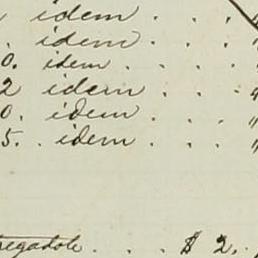 idem . . . "
. idem . . . "
0. idem . . . "
2 idem . . . "
0. idem . . . "
5. . idem . . . "
regadole . . . $ 2.